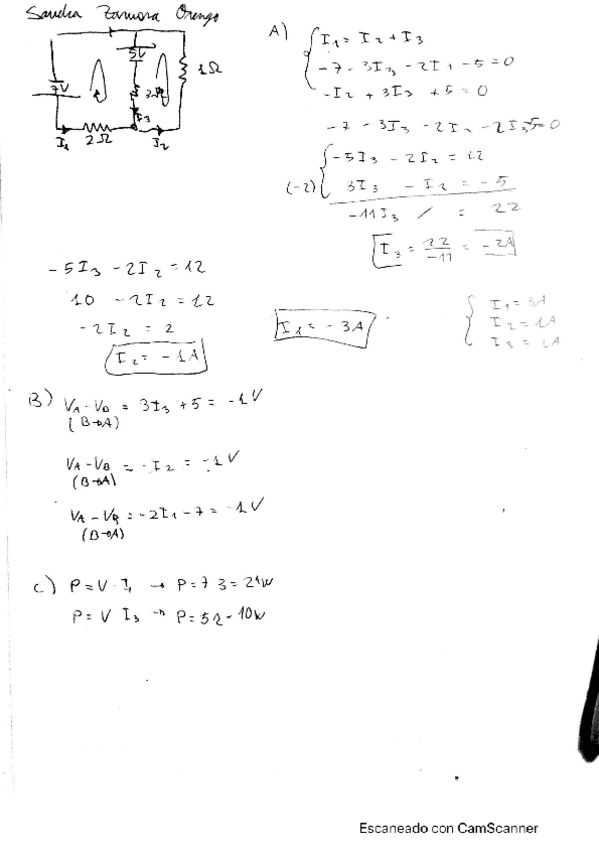 Sandra Zamora Orengo
5V
1Ω
7V
I₃
I₁ 2Ω I₂
A)
I₁ = I₂ + I₃
-7 - 3I₃ - 2I₁ - 5 = 0
-I₂ + 3I₃ + 5 = 0
-7 - 3I₃ - 2I₂ - 2I₃ - 5 = 0
-5I₃ - 2I₂ = 12
(-2) 3I₃ - I₂ = -5
-11I₃ / = 22
I₃ = 22/-11 = -2A
-5I₃ - 2I₂ = 12
10 - 2I₂ = 12
-2I₂ = 2
I₂ = -1A
I₁ = -3A
I₁ = 3A
I₂ = 1A
I₃ = 2A
B) VA - VB = 3I₃ + 5 = -1V
(B→A)
VA - VB = -I₂ = -1V
(B→A)
VA - VB = -2I₁ - 7 = -1V
(B→A)
C) P = V · I₁ → P = 7 3 = 21W
P = V I₃ → P = 5 2 = 10W
Escaneado con CamScanner